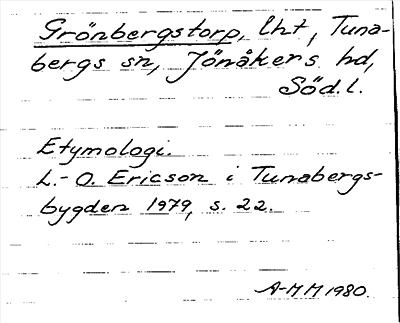 Grönbergstorp, lht, Tuna-
bergs sn, Jönåkers hd,
Söd.l.
Etymologi.
L.-O. Ericson i Tunabergs-
bygden 1979, s. 22.
A-MM 1980.